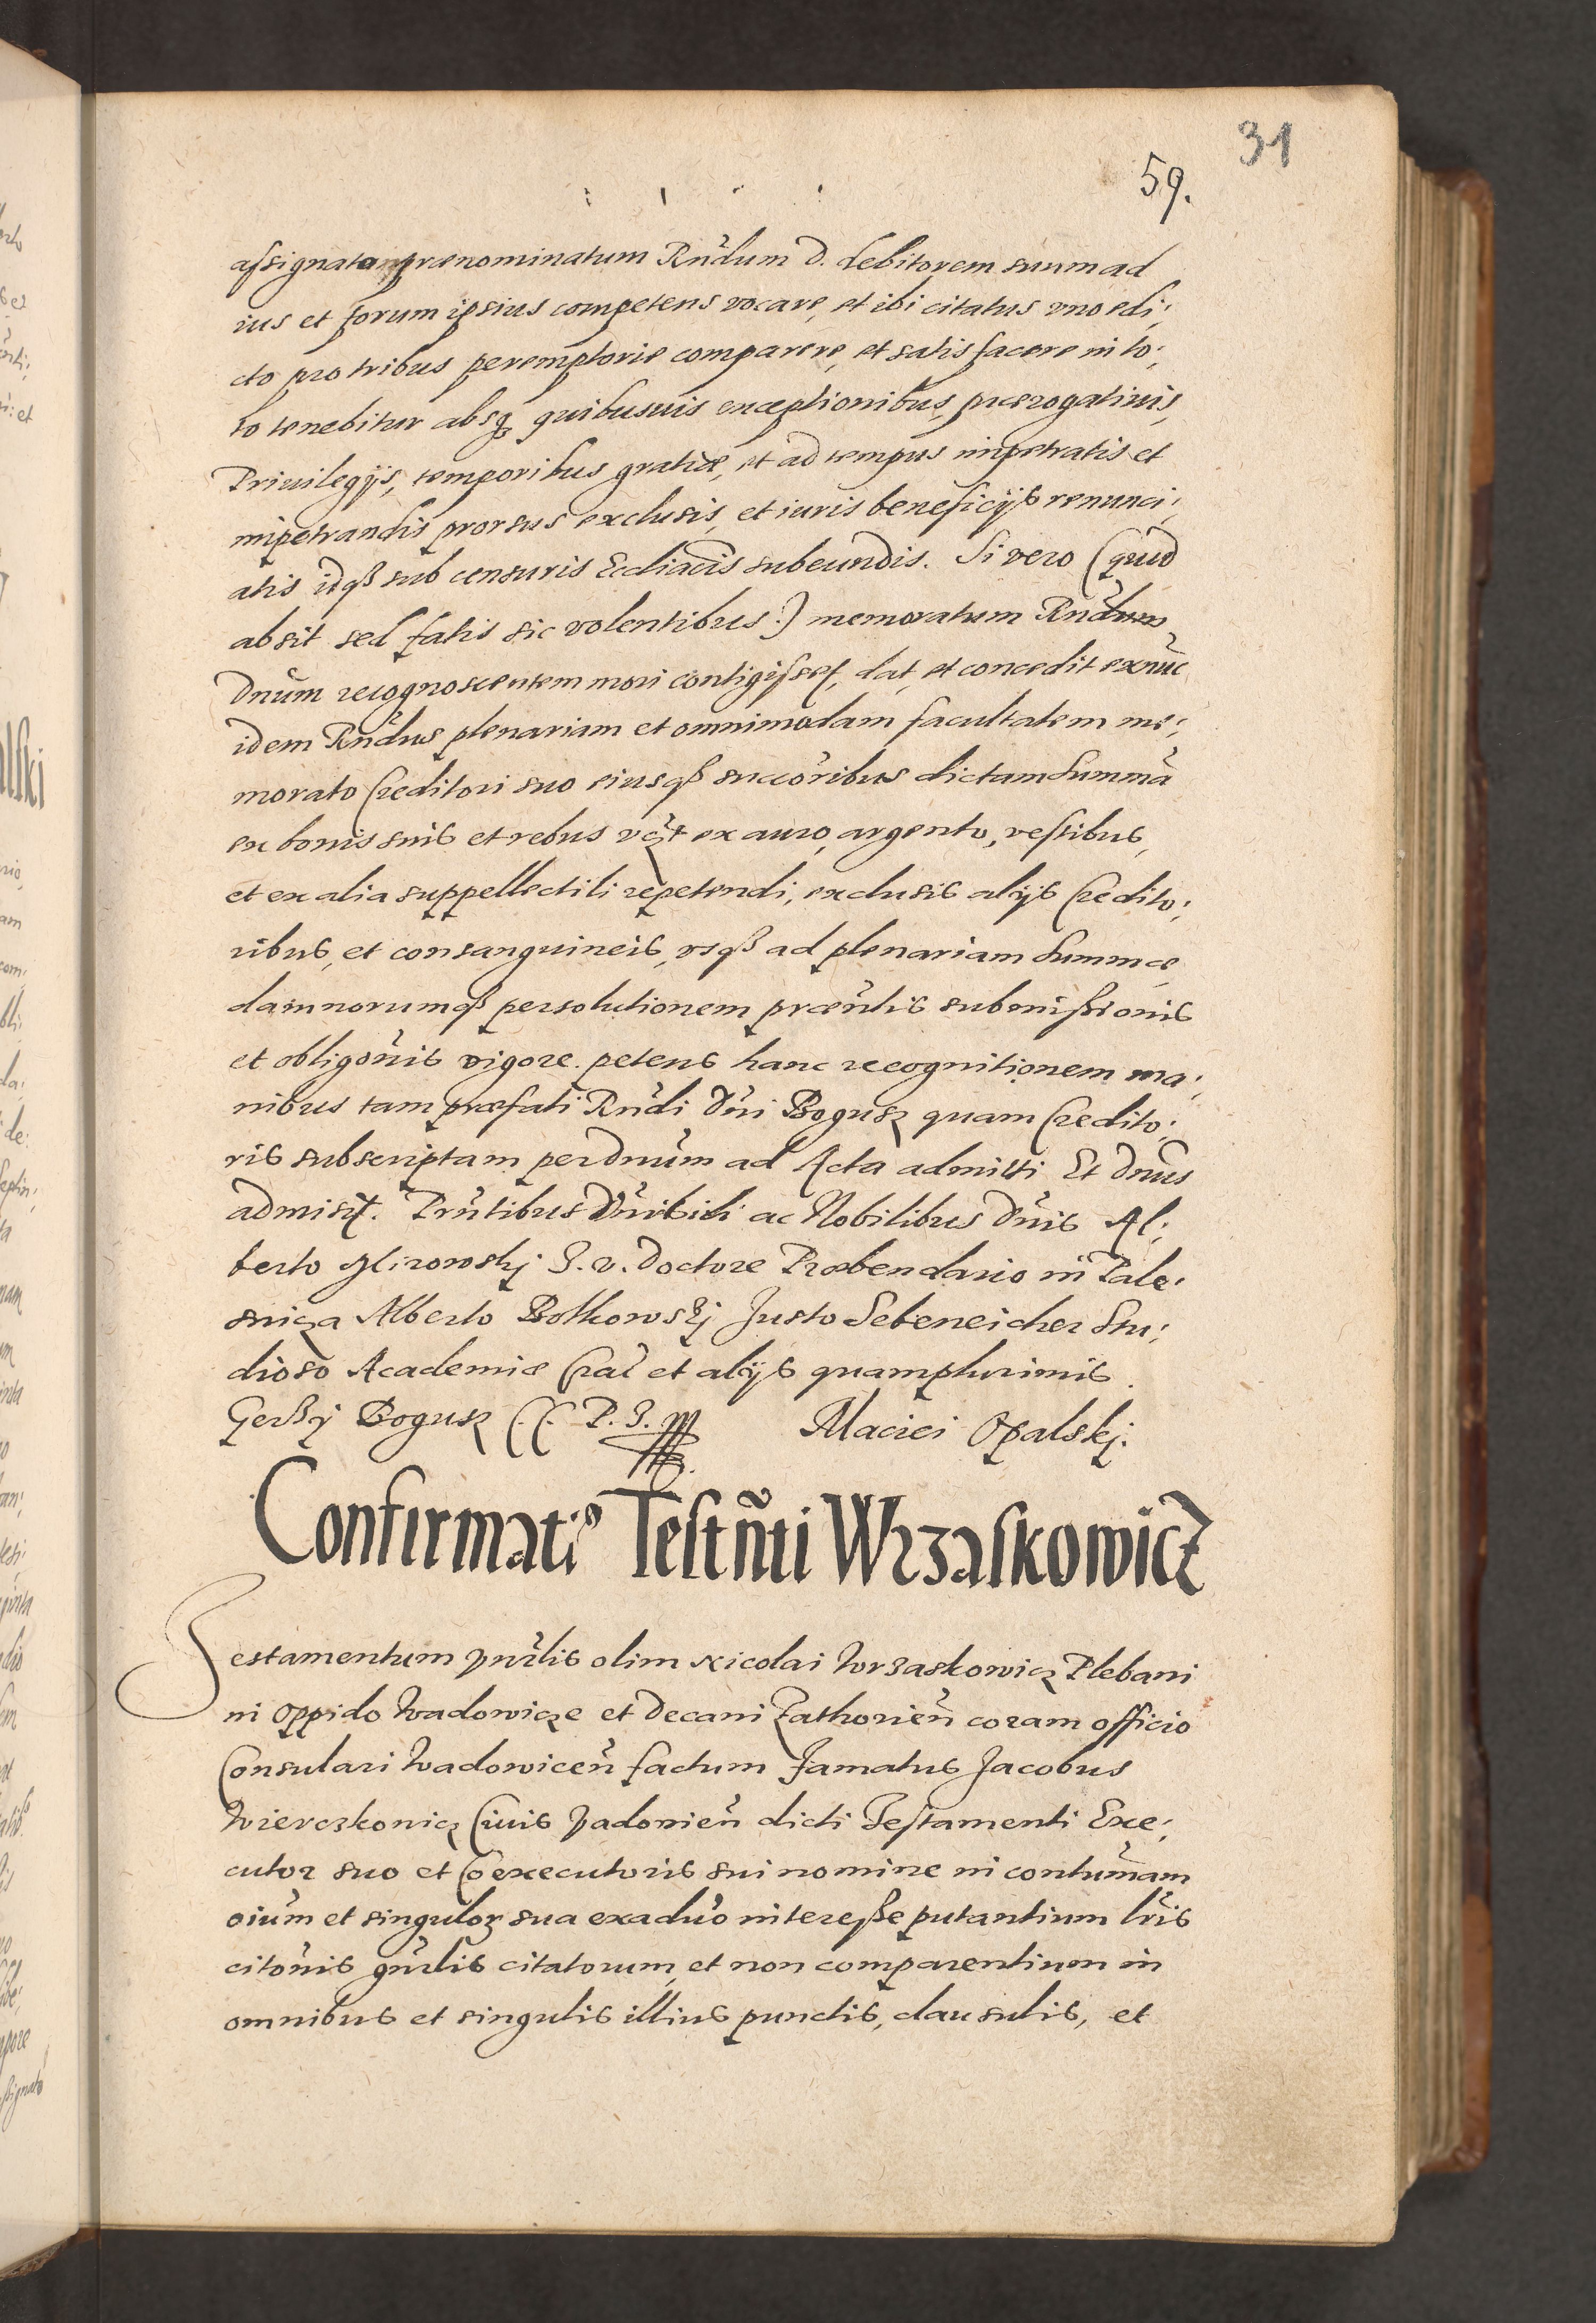 31
59.
assignatam prænominatum Rndum D. debitorem suum ad
ius et forum ipsius competens vocare, et ibi citatus vno edi:
cto pro tribus peremptorie comparere, et satisfacere in to:
to tenebitur absq quibusuis exceptionibus, prærogatiuis,
Priuilegijs, temporibus gratiæ, et ad tempus impetratis et
impetrandis prorsus exclusis, et iuris beneficijs renunci:
atis idq sub censuris Eccliacis subeundis. Si vero (quod
absit sed fatis sic volentibus:) memoratum Rndum
Dnum recognoscentem mori contigisset, dat, et concedit exnuc
idem Rndus plenariam et omnimodam facultatem me:
morato Creditori suo eiusq succoribus dictam summa
ex bonis suis et rebus vt ex auro, argento, vestibus,
et ex alia suppellectili repetendi, exclusis alijs Credito:
ribus, et consanguineis, vsq ad plenariam summæ
damnorumq persolutionem præntis submissionis
et obligonis vigore. petens hanc recognitionem ma:
nibus tam præfati Rndi Dni Bogusz quam Credito:
ris subscriptam per Dnum ad Acta admitti Et Dnus
admisit. Prntibus Dnibili ac Nobilibus Dnis Al:
berto Glizowskj J. v. Doctore Præbendario in Pale:
sniza Alberto Botkowskj Justo Sebeneicher Stu:
dioso Academiæ Crac et alijs quamplurimis.
Gerßy Bogusz C. C. P. S. Maciei Opalskj.
Confirmatio Testmti Wrzaskowicz
Testamentum ven̄rlis olim Nicolai Wrzaskowicz Plebani
in Oppido Wadowicze et Decani Zathorien coram officio
Consulari Wadowicen factum Famatus Jacobus
Wierczkowicz Ciuis Vadowien dicti Testamenti Exe:
cutor suo et Coexecutoris sui nomine in contumam
oium et singulor sua exaduo interesse putantium lris
citonis gnrlis citatorum, et non comparentium in
omnibus et singulis illius punctis, clausulis, et